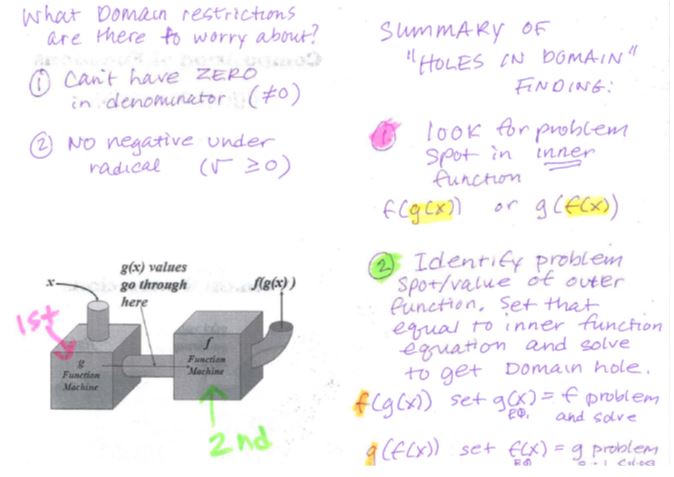 What Domain restrictions
are there to worry about?
① Can't have ZERO
in denominator (≠0)
② No negative under
radical (√ ≥0)
x
g(x) values
go through
here
f(g(x))
1st
g
Function
Machine
f
Function
Machine
2nd
SUMMARY OF
"HOLES IN DOMAIN"
FINDING:
① look for problem
spot in inner
function
f(g(x)) or g(f(x))
② Identify problem
spot/value of outer
function. Set that
equal to inner function
equation and solve
to get Domain hole.
f(g(x)) set g(x) = f problem
EQ. and solve
g(f(x)) set f(x) = g problem
EQ